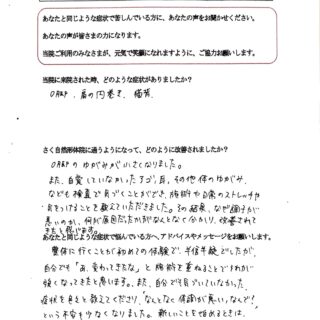 あなたと同じような症状で苦しんでいる方に、あなたの声をお聞かせください。
あなたの声が皆さまの力になります。
当院ご利用のみなさまが、元気で笑顔になれますように、ご協力お願いします。
当院に来院された時、どのような症状がありましたか?
O脚、肩の内巻き、猫背
さく自然形体院に通うようになって、どのように改善されましたか?
O脚のゆがみが小さくなりました。
また、自覚していなかったアゴ、耳、その他体のゆがみ
なども検査で気づくことができ、施術や日常のストレッチで
気をつけることを教えていただきました。その結果、なぜ調子が
悪いのか、何が原因だったかがなんとなく分かり、改善されて
きたと感じます。
あなたと同じような症状で悩んでいる方へ、アドバイスやメッセージをお願いします。
整体に行くことが初めての体験で、半信半疑でしたが、
自分でも「あ、変わってきたな」と施術を重ねるごとにそれが
強くなってきたと思います。また、自分でも気づいていなかった
症状を色々と教えてくださり、「なんとなく体調が悪い、なんで!」
という不安も少なくなりました。新しいことを始めるときは、